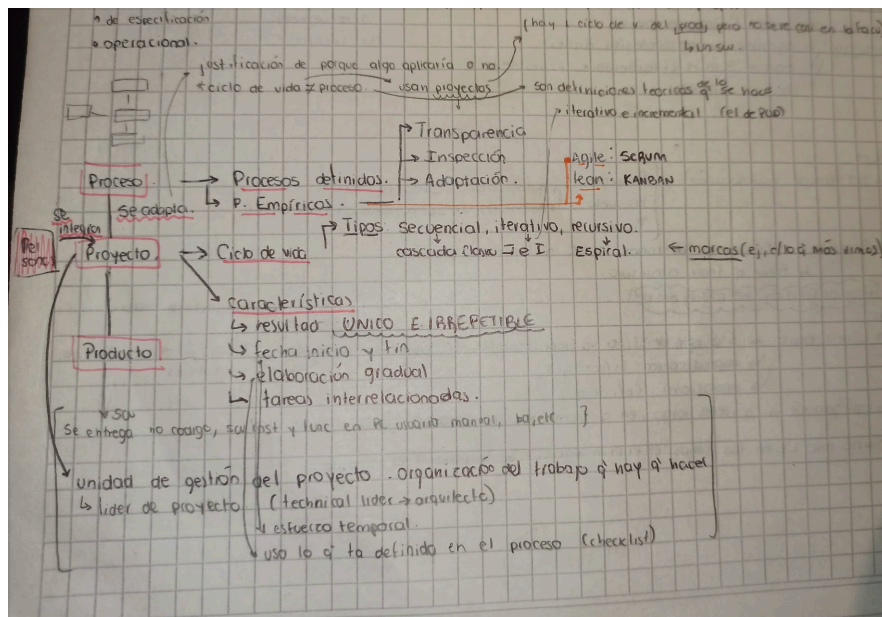 de especificación
• operacional.
(hay 1 ciclo de v. del prod, pero no se ve
justificación de porque algo aplicaría o no.
ciclo de vida ≠ proceso usan proyectos
son definiciones teóricas de lo q se hace
iterativo e incremental (el de PUD)
Transparencia
Inspección
Adaptación.
Agile: SCRUM
lean: KANBAN
Proceso. → Procesos definidos.
se adapta. P. Empíricos.
se integran
Personas
Proyecto. → Ciclo de vida
Tipos secuencial, iterativo, recursivo.
cascada I e I Espiral. ← marcos (ej,
características
↳ resultado ÚNICO E IRREPETIBLE
↳ fecha inicio y fin
↳ elaboración gradual
↳ tareas interrelacionadas.
Producto
Se entrega no codigo, sw inst y func en PC usuario manual, bd, etc.
unidad de gestión del proyecto. organización del trabajo q' hay q' hacer
↳ lider de proyecto (technical lider → arquitecto)
esfuerzo temporal.
uso lo q' ta definido en el proceso (checklist)